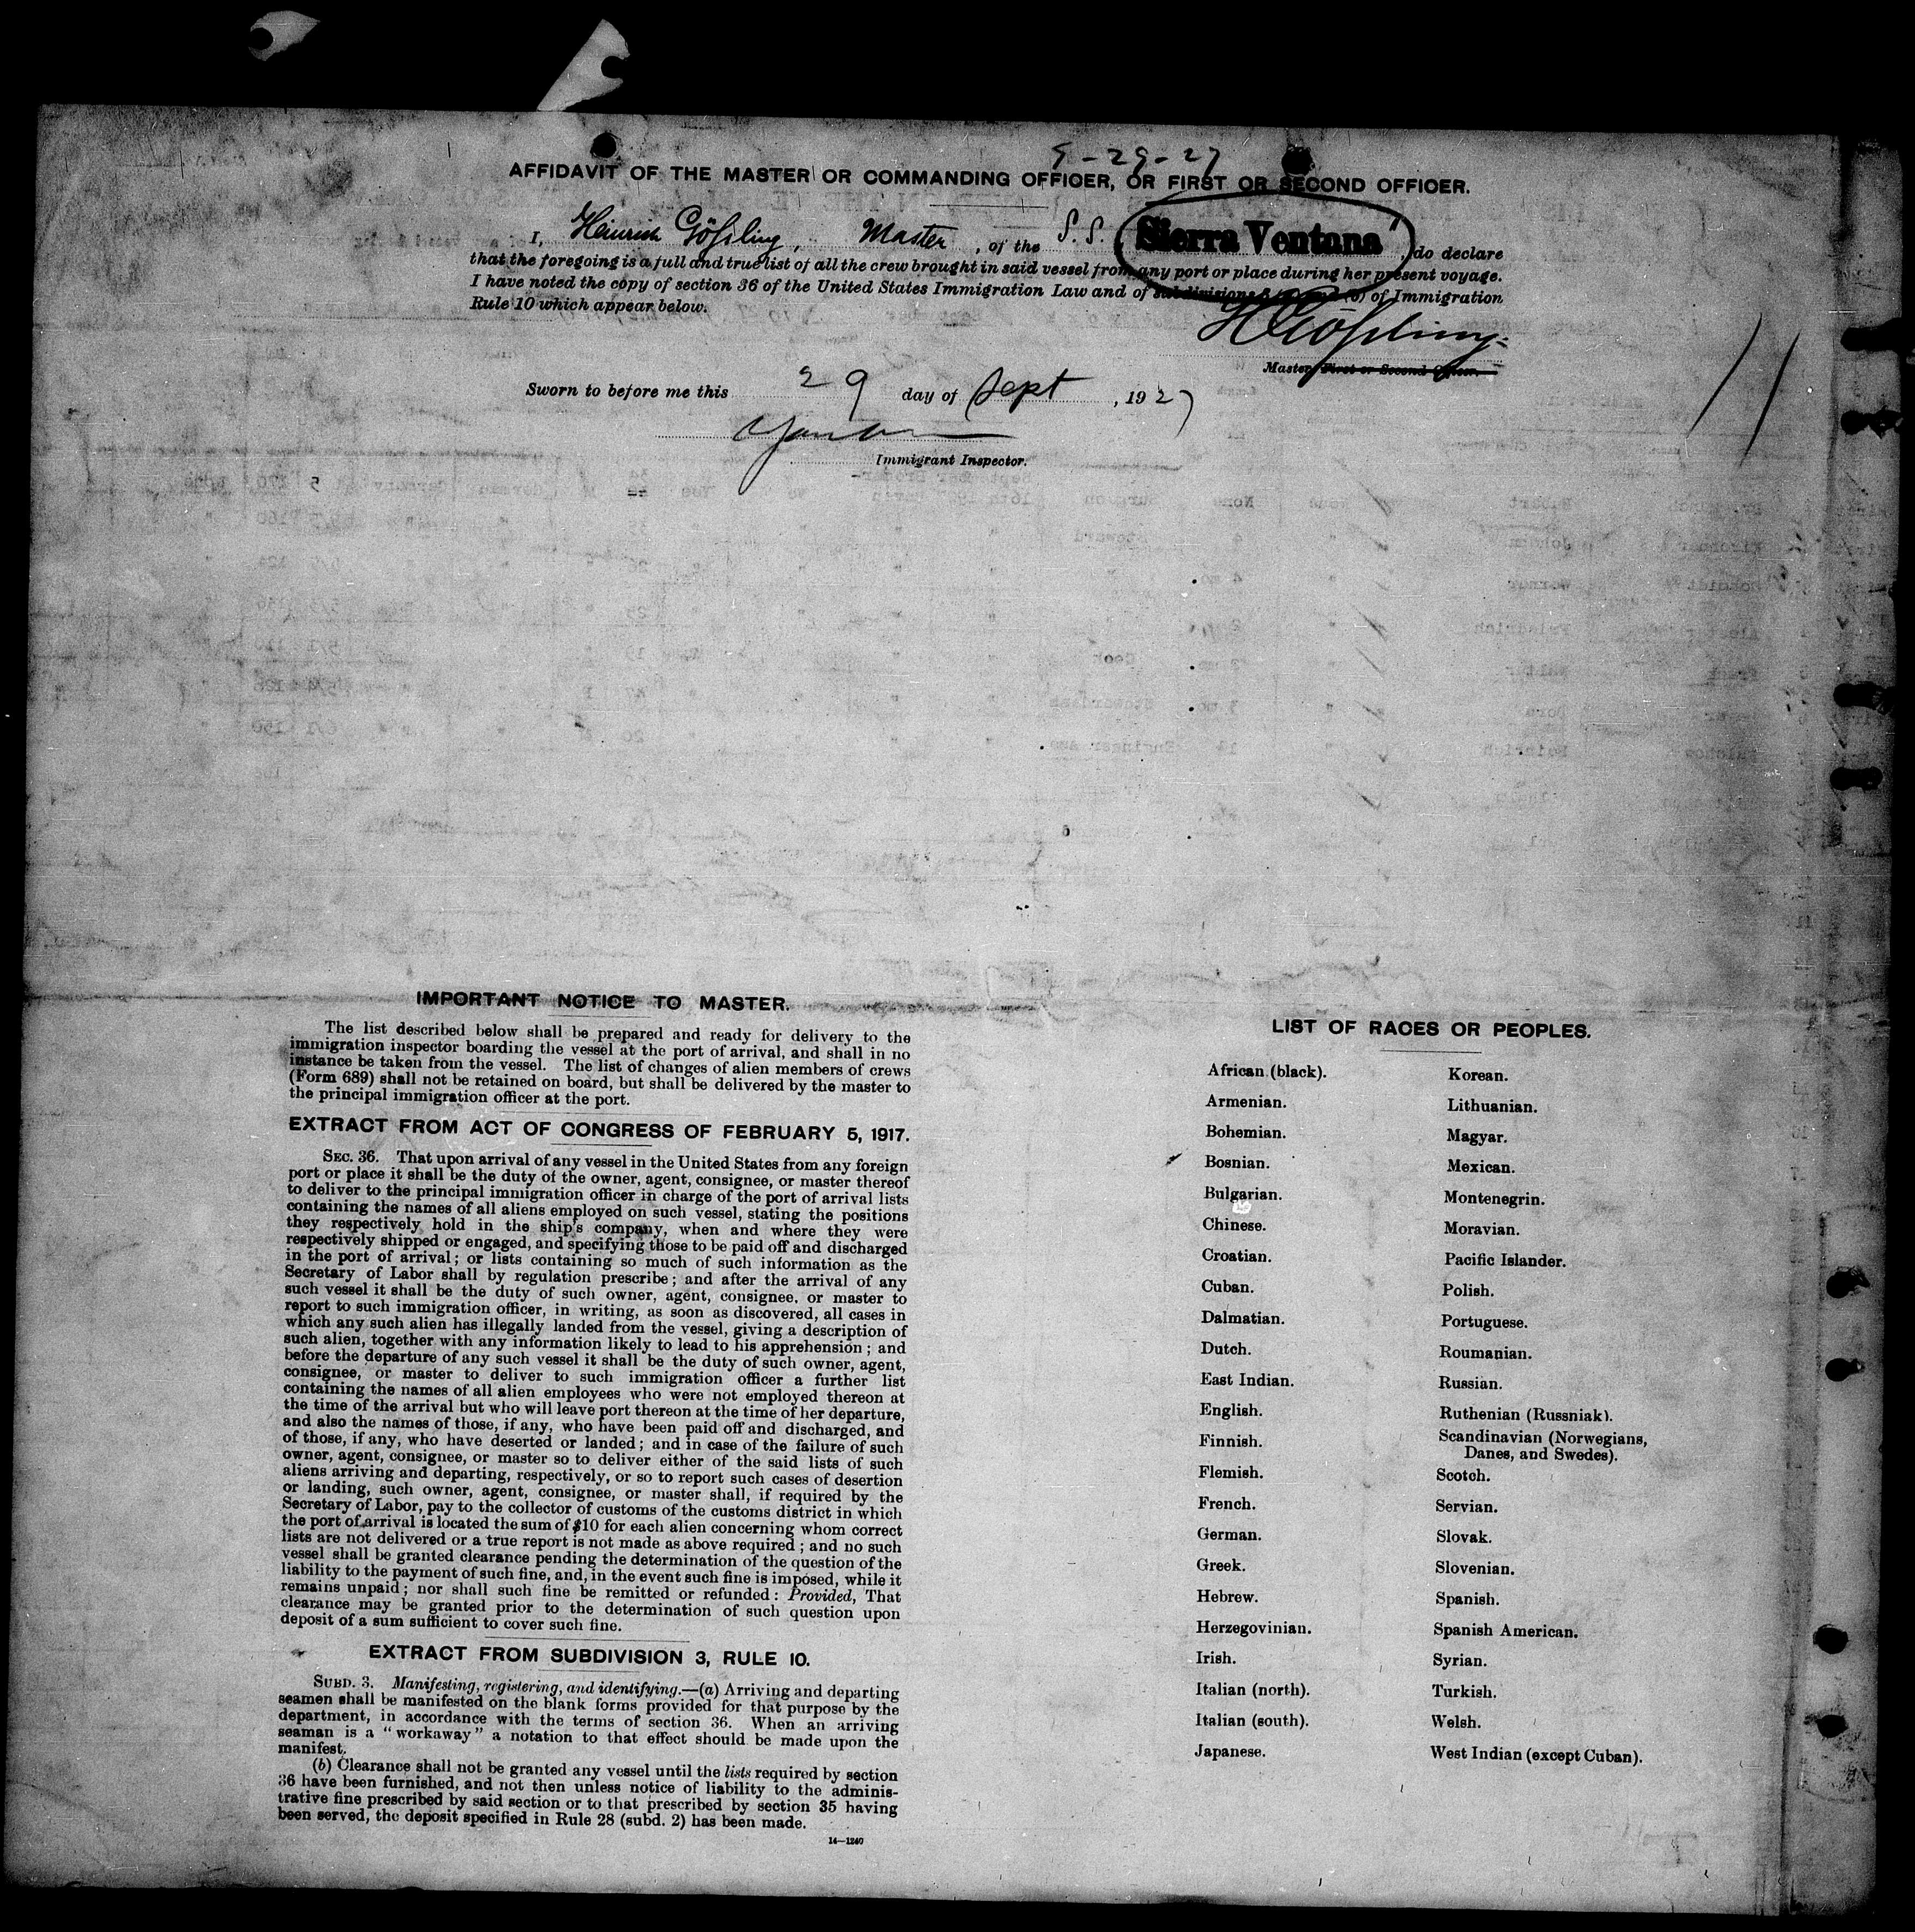 9-29-27
AFFIDAVIT OF THE MASTER OR COMMANDING OFFICER, OR FIRST OR SECOND OFFICER.
I, Heinrich Gößling, Master, of the S.S. "Sierra Ventana" do declare
that the foregoing is a full and true list of all the crew brought in said vessel from any port or place during her present voyage.
I have noted the copy of section 36 of the United States Immigration Law and of subdivisions (b) of Immigration
Rule 10 which appear below.
HGößling
Master, First or Second Officer.
Sworn to before me this 29 day of Sept, 1927
Immigrant Inspector.
IMPORTANT NOTICE TO MASTER.
The list described below shall be prepared and ready for delivery to the
immigration inspector boarding the vessel at the port of arrival, and shall in no
instance be taken from the vessel. The list of changes of alien members of crews
(Form 689) shall not be retained on board, but shall be delivered by the master to
the principal immigration officer at the port.
EXTRACT FROM ACT OF CONGRESS OF FEBRUARY 5, 1917.
SEC. 36. That upon arrival of any vessel in the United States from any foreign
port or place it shall be the duty of the owner, agent, consignee, or master thereof
to deliver to the principal immigration officer in charge of the port of arrival lists
containing the names of all aliens employed on such vessel, stating the positions
they respectively hold in the ship's company, when and where they were
respectively shipped or engaged, and specifying those to be paid off and discharged
in the port of arrival; or lists containing so much of such information as the
Secretary of Labor shall by regulation prescribe; and after the arrival of any
such vessel it shall be the duty of such owner, agent, consignee, or master to
report to such immigration officer, in writing, as soon as discovered, all cases in
which any such alien has illegally landed from the vessel, giving a description of
such alien, together with any information likely to lead to his apprehension; and
before the departure of any such vessel it shall be the duty of such owner, agent,
consignee, or master to deliver to such immigration officer a further list
containing the names of all alien employees who were not employed thereon at
the time of the arrival but who will leave port thereon at the time of her departure,
and also the names of those, if any, who have been paid off and discharged, and
of those, if any, who have deserted or landed; and in case of the failure of such
owner, agent, consignee, or master so to deliver either of the said lists of such
aliens arriving and departing, respectively, or so to report such cases of desertion
or landing, such owner, agent, consignee, or master shall, if required by the
Secretary of Labor, pay to the collector of customs of the customs district in which
the port of arrival is located the sum of $10 for each alien concerning whom correct
lists are not delivered or a true report is not made as above required; and no such
vessel shall be granted clearance pending the determination of the question of the
liability to the payment of such fine, and, in the event such fine is imposed, while it
remains unpaid; nor shall such fine be remitted or refunded: Provided, That
clearance may be granted prior to the determination of such question upon
deposit of a sum sufficient to cover such fine.
EXTRACT FROM SUBDIVISION 3, RULE 10.
SUBD. 3. Manifesting, registering, and identifying.—(a) Arriving and departing
seamen shall be manifested on the blank forms provided for that purpose by the
department, in accordance with the terms of section 36. When an arriving
seaman is a "workaway" a notation to that effect should be made upon the
manifest.
(b) Clearance shall not be granted any vessel until the lists required by section
36 have been furnished, and not then unless notice of liability to the adminis-
trative fine prescribed by said section or to that prescribed by section 35 having
been served, the deposit specified in Rule 28 (subd. 2) has been made.
14—1240
LIST OF RACES OR PEOPLES.
African (black).
Armenian.
Bohemian.
Bosnian.
Bulgarian.
Chinese.
Croatian.
Cuban.
Dalmatian.
Dutch.
East Indian.
English.
Finnish.
Flemish.
French.
German.
Greek.
Hebrew.
Herzegovinian.
Irish.
Italian (north).
Italian (south).
Japanese.
Korean.
Lithuanian.
Magyar.
Mexican.
Montenegrin.
Moravian.
Pacific Islander.
Polish.
Portuguese.
Roumanian.
Russian.
Ruthenian (Russniak).
Scandinavian (Norwegians,
Danes, and Swedes).
Scotch.
Servian.
Slovak.
Slovenian.
Spanish.
Spanish American.
Syrian.
Turkish.
Welsh.
West Indian (except Cuban).